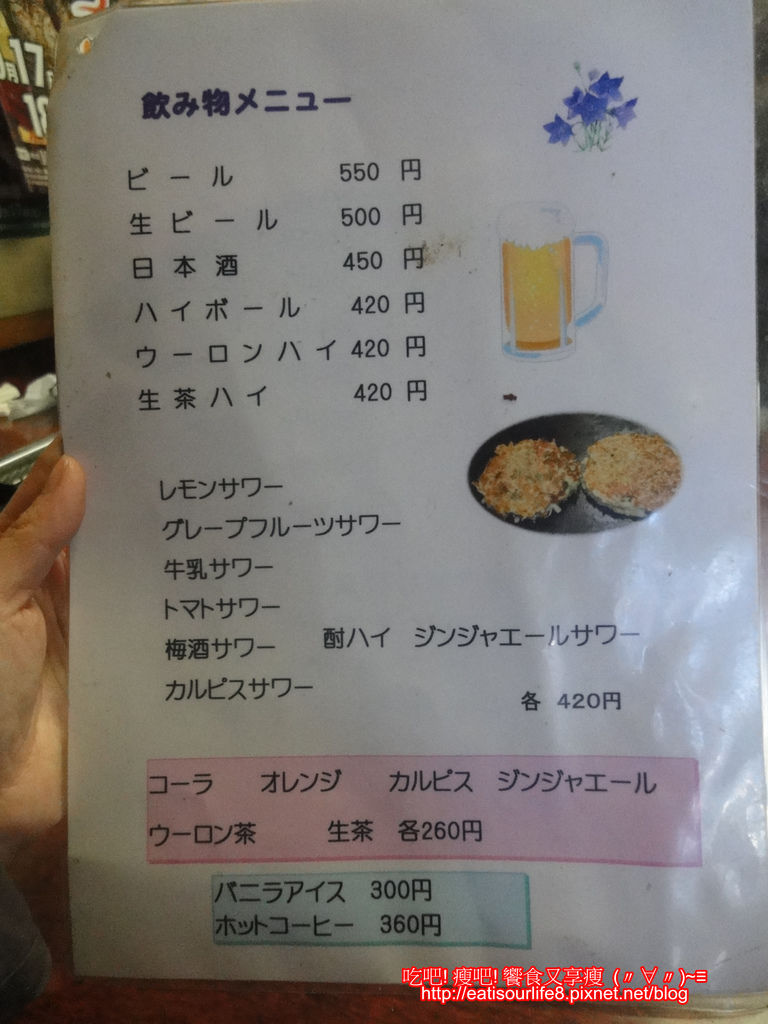 17
18
飲み物メニュー
ビール 550 円
生ビール 500 円
日本酒 450 円
ハイボール 420 円
ウーロンハイ 420 円
生茶ハイ 420 円
レモンサワー
グレープフルーツサワー
牛乳サワー
トマトサワー
梅酒サワー 酎ハイ ジンジャエールサワー
カルピスサワー
各 420円
コーラ オレンジ カルピス ジンジャエール
ウーロン茶 生茶 各260円
バニラアイス 300円
ホットコーヒー 360円
吃吧! 瘦吧! 饗食又享瘦 (〃∀〃)~≡
http://eatisourlife8.pixnet.net/blog